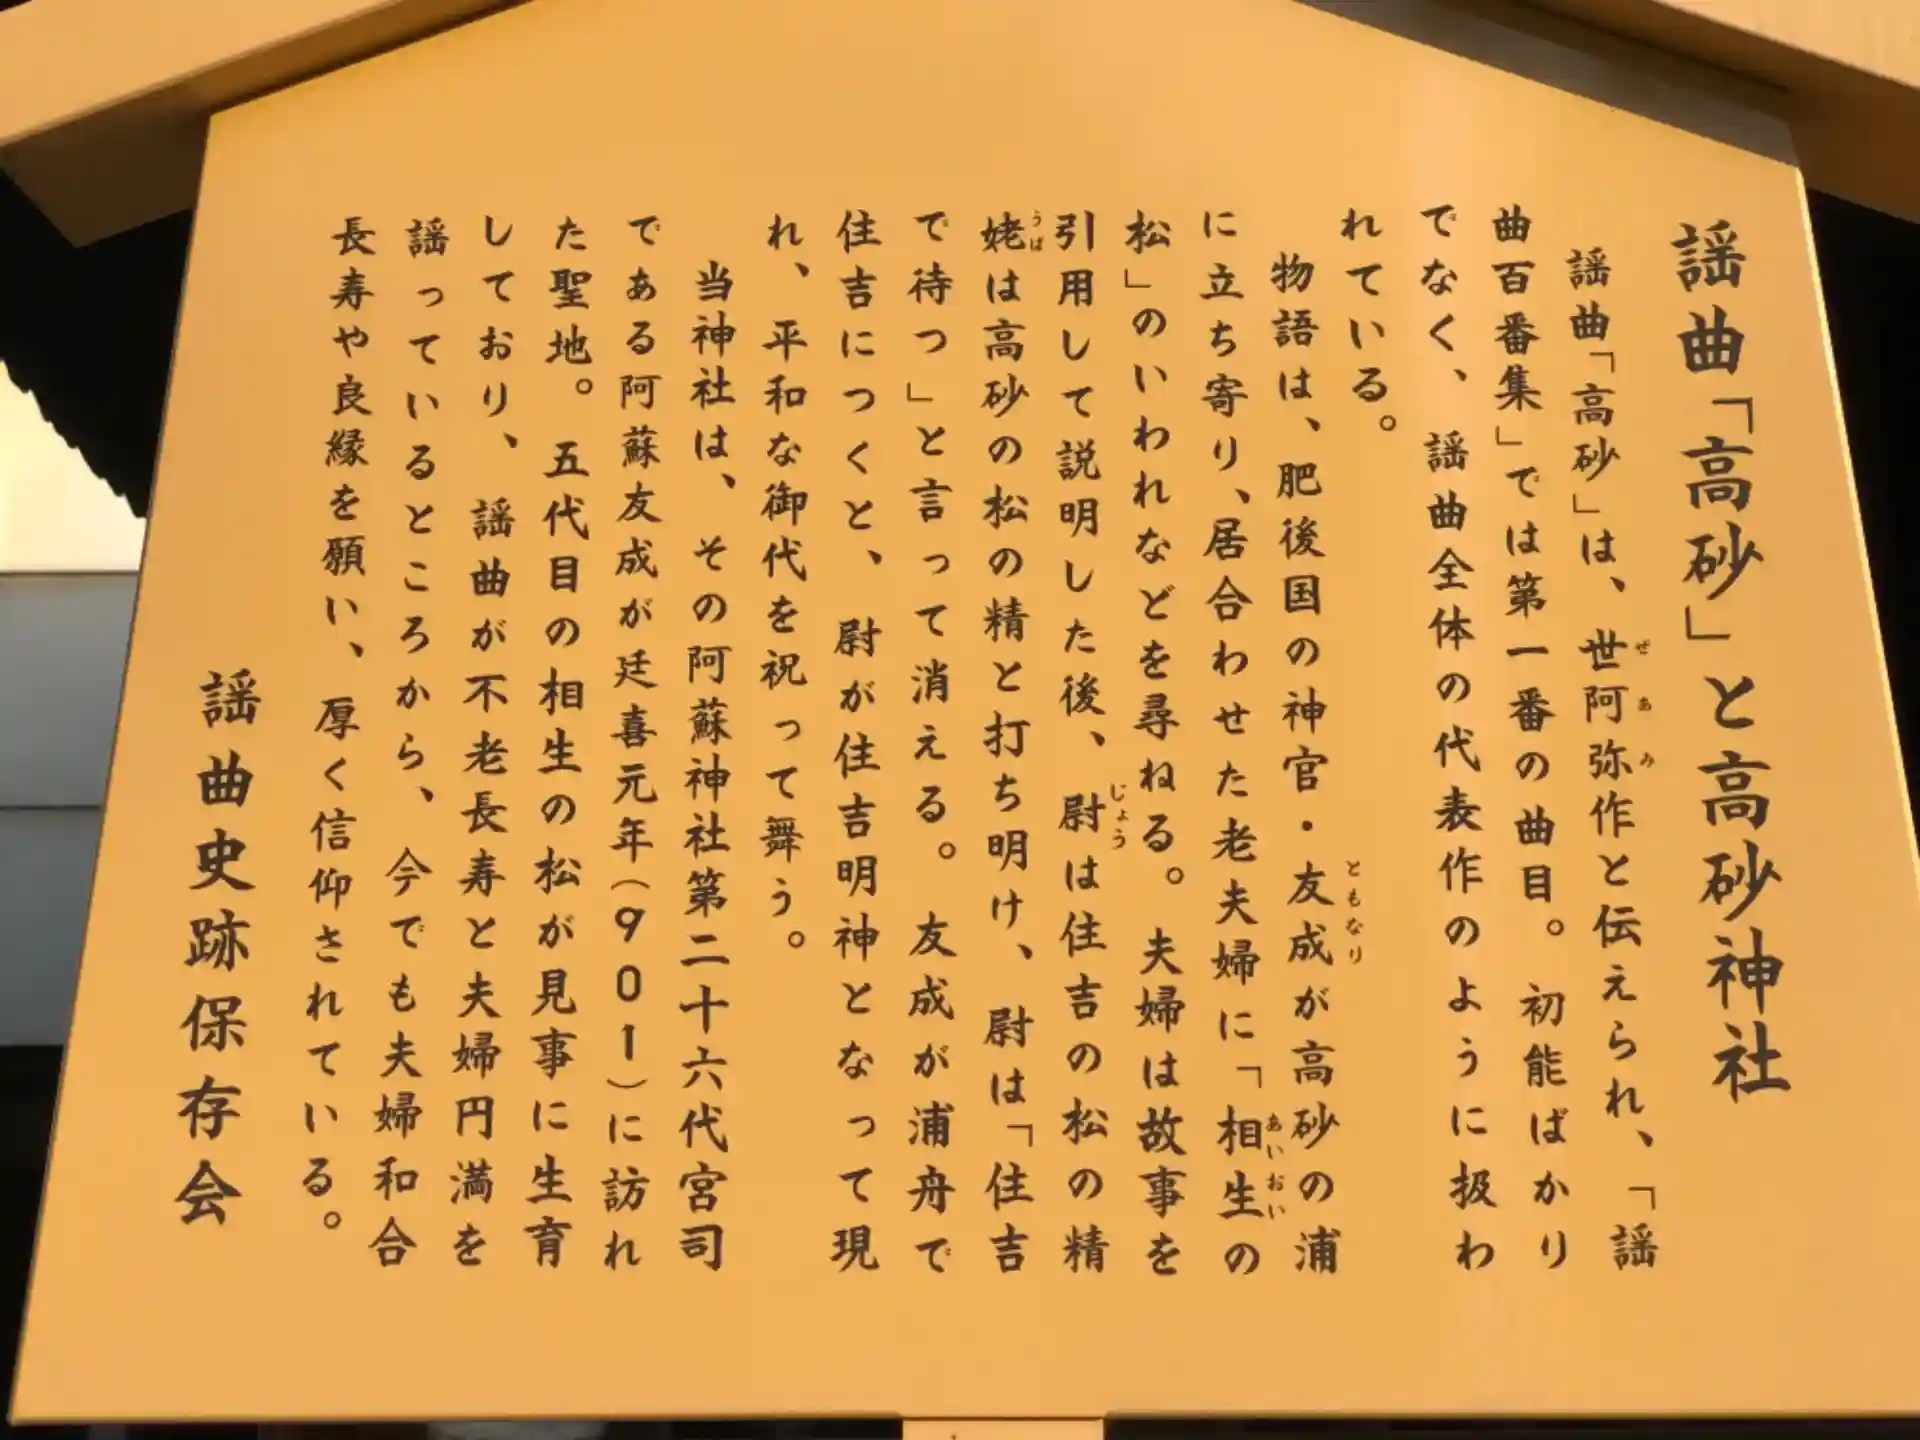 謡曲「高砂」と高砂神社
謡曲「高砂」は、世阿弥作と伝えられ、「謡
曲百番集」では第一番の曲目。初能ばかり
でなく、謡曲全体の代表作のように扱わ
れている。
物語は、肥後国の神官・友成が高砂の浦
に立ち寄り、居合わせた老夫婦に「相生の
松」のいわれなどを尋ねる。夫婦は故事を
引用して説明した後、尉は住吉の松の精
姥は高砂の松の精と打ち明け、尉は「住吉
で待つ」と言って消える。友成が浦舟で
住吉につくと、尉が住吉明神となって現
れ、平和な御代を祝って舞う。
当神社は、その阿蘇神社第二十六代宮司
である阿蘇友成が廷喜元年(901)に訪れ
た聖地。五代目の相生の松が見事に生育
しており、謡曲が不老長寿と夫婦円満を
謡っているところから、今でも夫婦和合
長寿や良縁を願い、厚く信仰されている。
謡曲史跡保存会
ぜあみ
ともなり
あいおい
じょう
うば